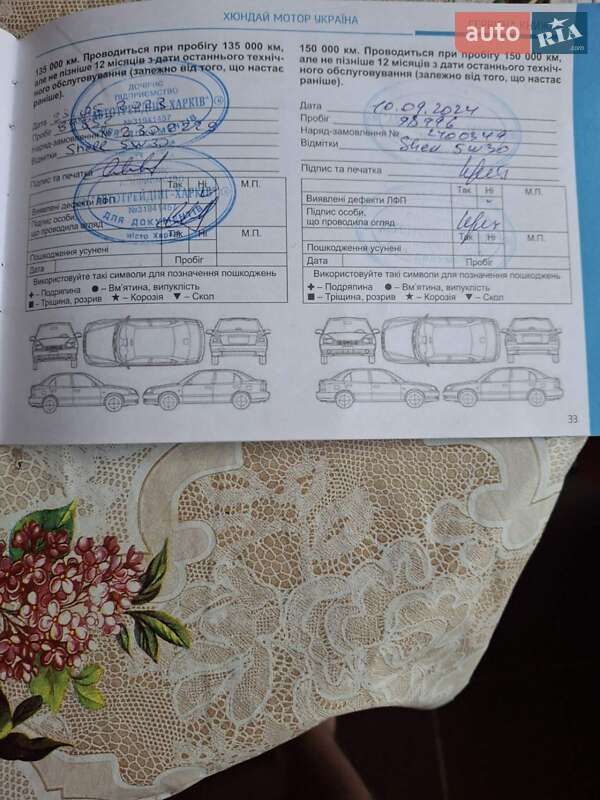 ХЮНДАЙ МОТОР УКРАЇНА
auto
RIA.com
135 000 км. Проводиться при пробігу 135 000 км,
але не пізніше 12 місяців з дати останнього техніч-
ного обслуговування (залежно від того, що настає
раніше).
ДОЧІРНЄ
ПІДПРИЄМСТВО
"АВТОТРЕЙДІНГ-ХАРКІВ"
№31941457
Дата
Пробіг
Наряд-замовлення №
Відмітки Shell 5W30
Підпис та печатка
Так Ні М.П.
Виявлені дефекти ЛФП
"АВТОТРЕЙДІНГ-ХАРКІВ"
№31941457
ДЛЯ ДОКУМЕНТІВ
місто Харків
Підпис особи,
що проводила огляд
Так Ні М.П.
Пошкодження усунені
Дата Пробіг
Використовуйте такі символи для позначення пошкоджень
– Подряпина – Вм'ятина, випуклість
– Тріщина, розрив – Корозія – Скол
150 000 км. Проводиться при пробігу 150 000 км,
але не пізніше 12 місяців з дати останнього техніч-
ного обслуговування (залежно від того, що настає
раніше).
Дата 10.09.2024
Пробіг
Наряд-замовлення № 2400347
Відмітки Shell 5W30
Підпис та печатка
Так Ні М.П.
Виявлені дефекти ЛФП
Підпис особи,
що проводила огляд
Так Ні М.П.
Пошкодження усунені
Дата Пробіг
Використовуйте такі символи для позначення пошкоджень
– Подряпина – Вм'ятина, випуклість
– Тріщина, розрив – Корозія – Скол
33